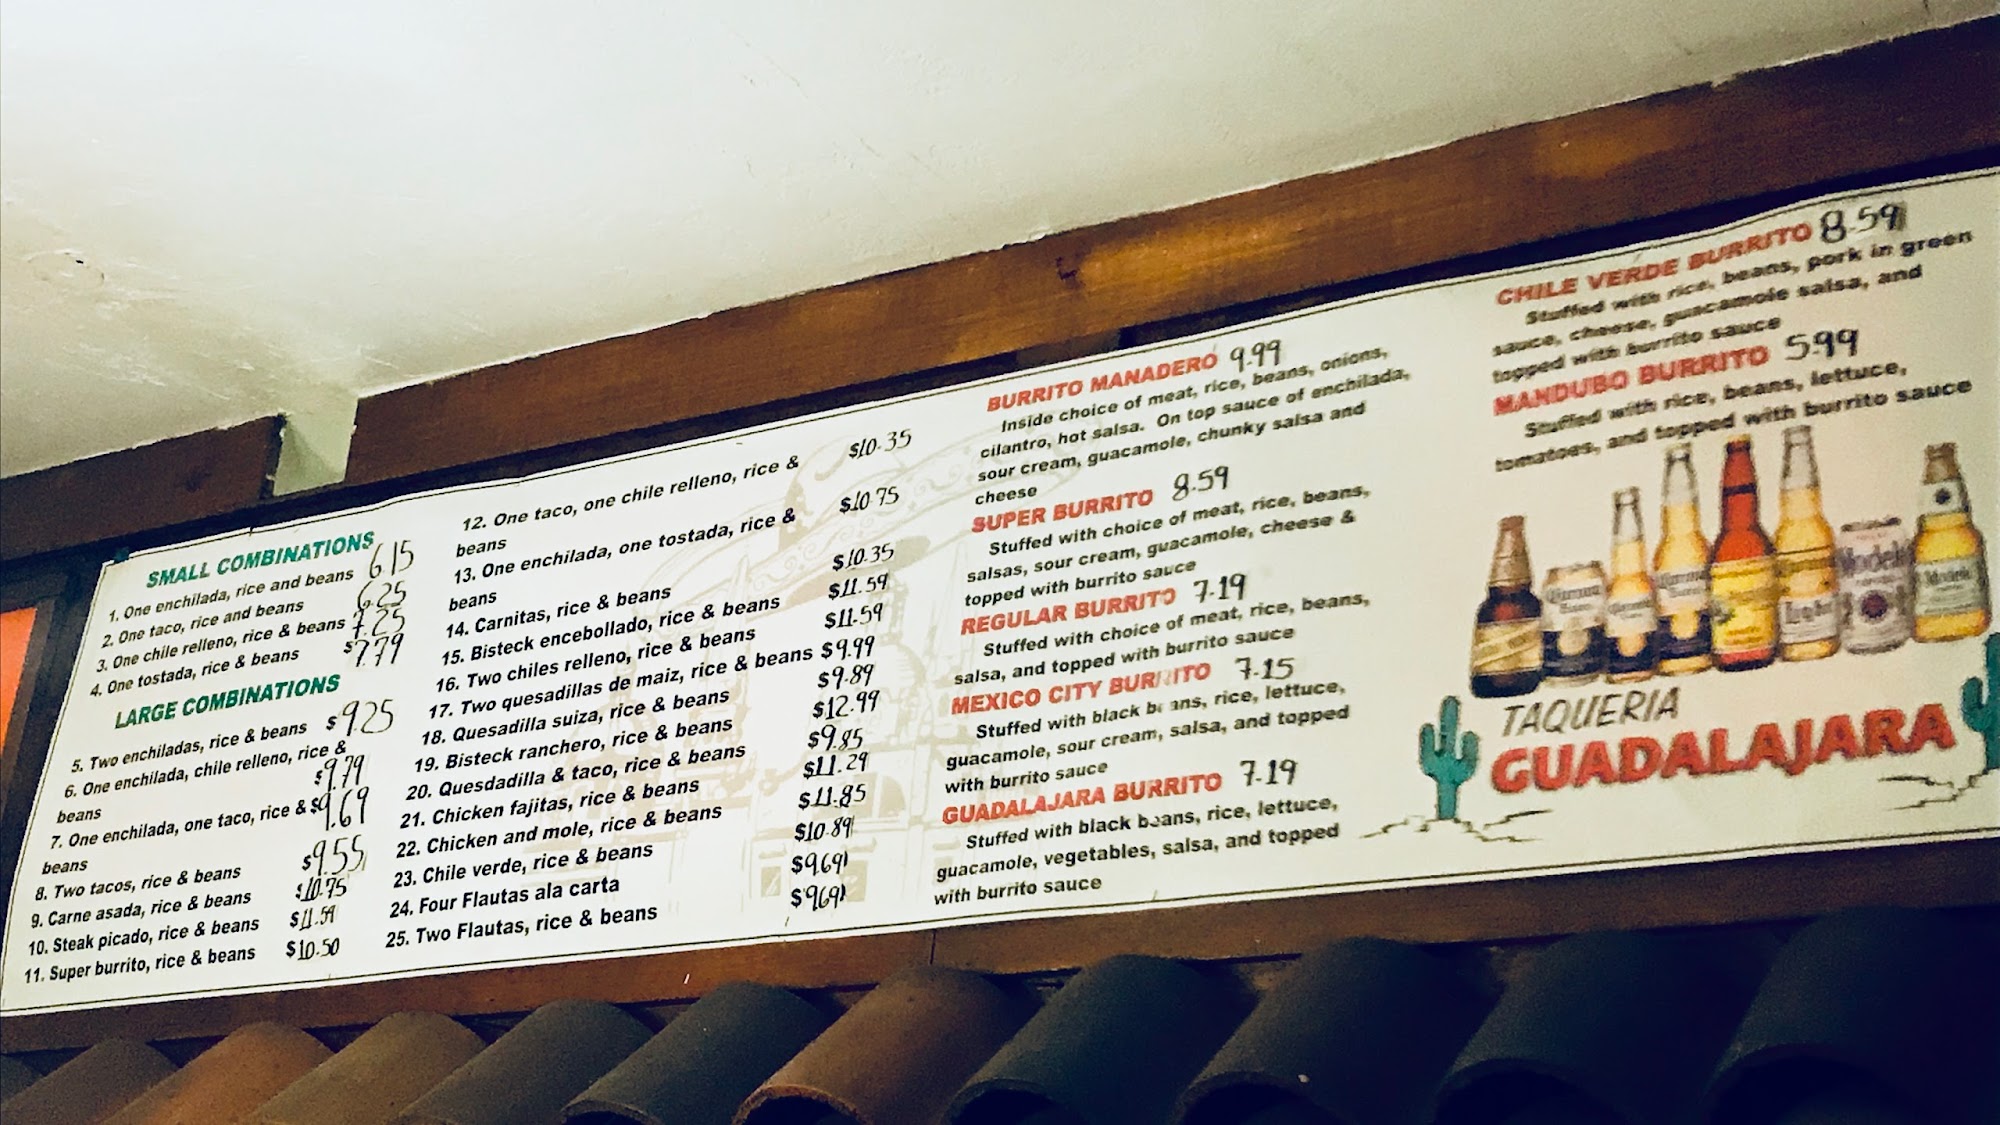 SMALL COMBINATIONS
1. One enchilada, rice and beans 6.15
2. One taco, rice and beans 6.25
3. One chile relleno, rice & beans 7.25
4. One tostada, rice & beans $7.79
LARGE COMBINATIONS
5. Two enchiladas, rice & beans $9.25
6. One enchilada, chile relleno, rice &
beans $9.79
7. One enchilada, one taco, rice & $9.69
beans
8. Two tacos, rice & beans $9.55
9. Carne asada, rice & beans $10.75
10. Steak picado, rice & beans $11.59
11. Super burrito, rice & beans $10.50
12. One taco, one chile relleno, rice & $10.35
beans
13. One enchilada, one tostada, rice & $10.75
beans
14. Carnitas, rice & beans $10.35
15. Bisteck encebollado, rice & beans $11.59
16. Two chiles relleno, rice & beans $11.59
17. Two quesadillas de maiz, rice & beans $9.99
18. Quesadilla suiza, rice & beans $9.89
19. Bisteck ranchero, rice & beans $12.99
20. Quesdadilla & taco, rice & beans $9.85
21. Chicken fajitas, rice & beans $11.29
22. Chicken and mole, rice & beans $11.85
23. Chile verde, rice & beans $10.89
24. Four Flautas ala carta $9.69
25. Two Flautas, rice & beans $9.69
BURRITO MANADERO 9.99
Inside choice of meat, rice, beans, onions,
cilantro, hot salsa. On top sauce of enchilada,
sour cream, guacamole, chunky salsa and
cheese
SUPER BURRITO 8.59
Stuffed with choice of meat, rice, beans,
salsas, sour cream, guacamole, cheese &
topped with burrito sauce
REGULAR BURRITO 7.19
Stuffed with choice of meat, rice, beans,
salsa, and topped with burrito sauce
MEXICO CITY BURRITO 7.15
Stuffed with black beans, rice, lettuce,
guacamole, sour cream, salsa, and topped
with burrito sauce
GUADALAJARA BURRITO 7.19
Stuffed with black beans, rice, lettuce,
guacamole, vegetables, salsa, and topped
with burrito sauce
CHILE VERDE BURRITO 8.59
Stuffed with rice, beans, pork in green
sauce, cheese, guacamole salsa, and
topped with burrito sauce
MANDUBO BURRITO 5.99
Stuffed with rice, beans, lettuce,
tomatoes, and topped with burrito sauce
Corona
Modelo
TAQUERIA
GUADALAJARA